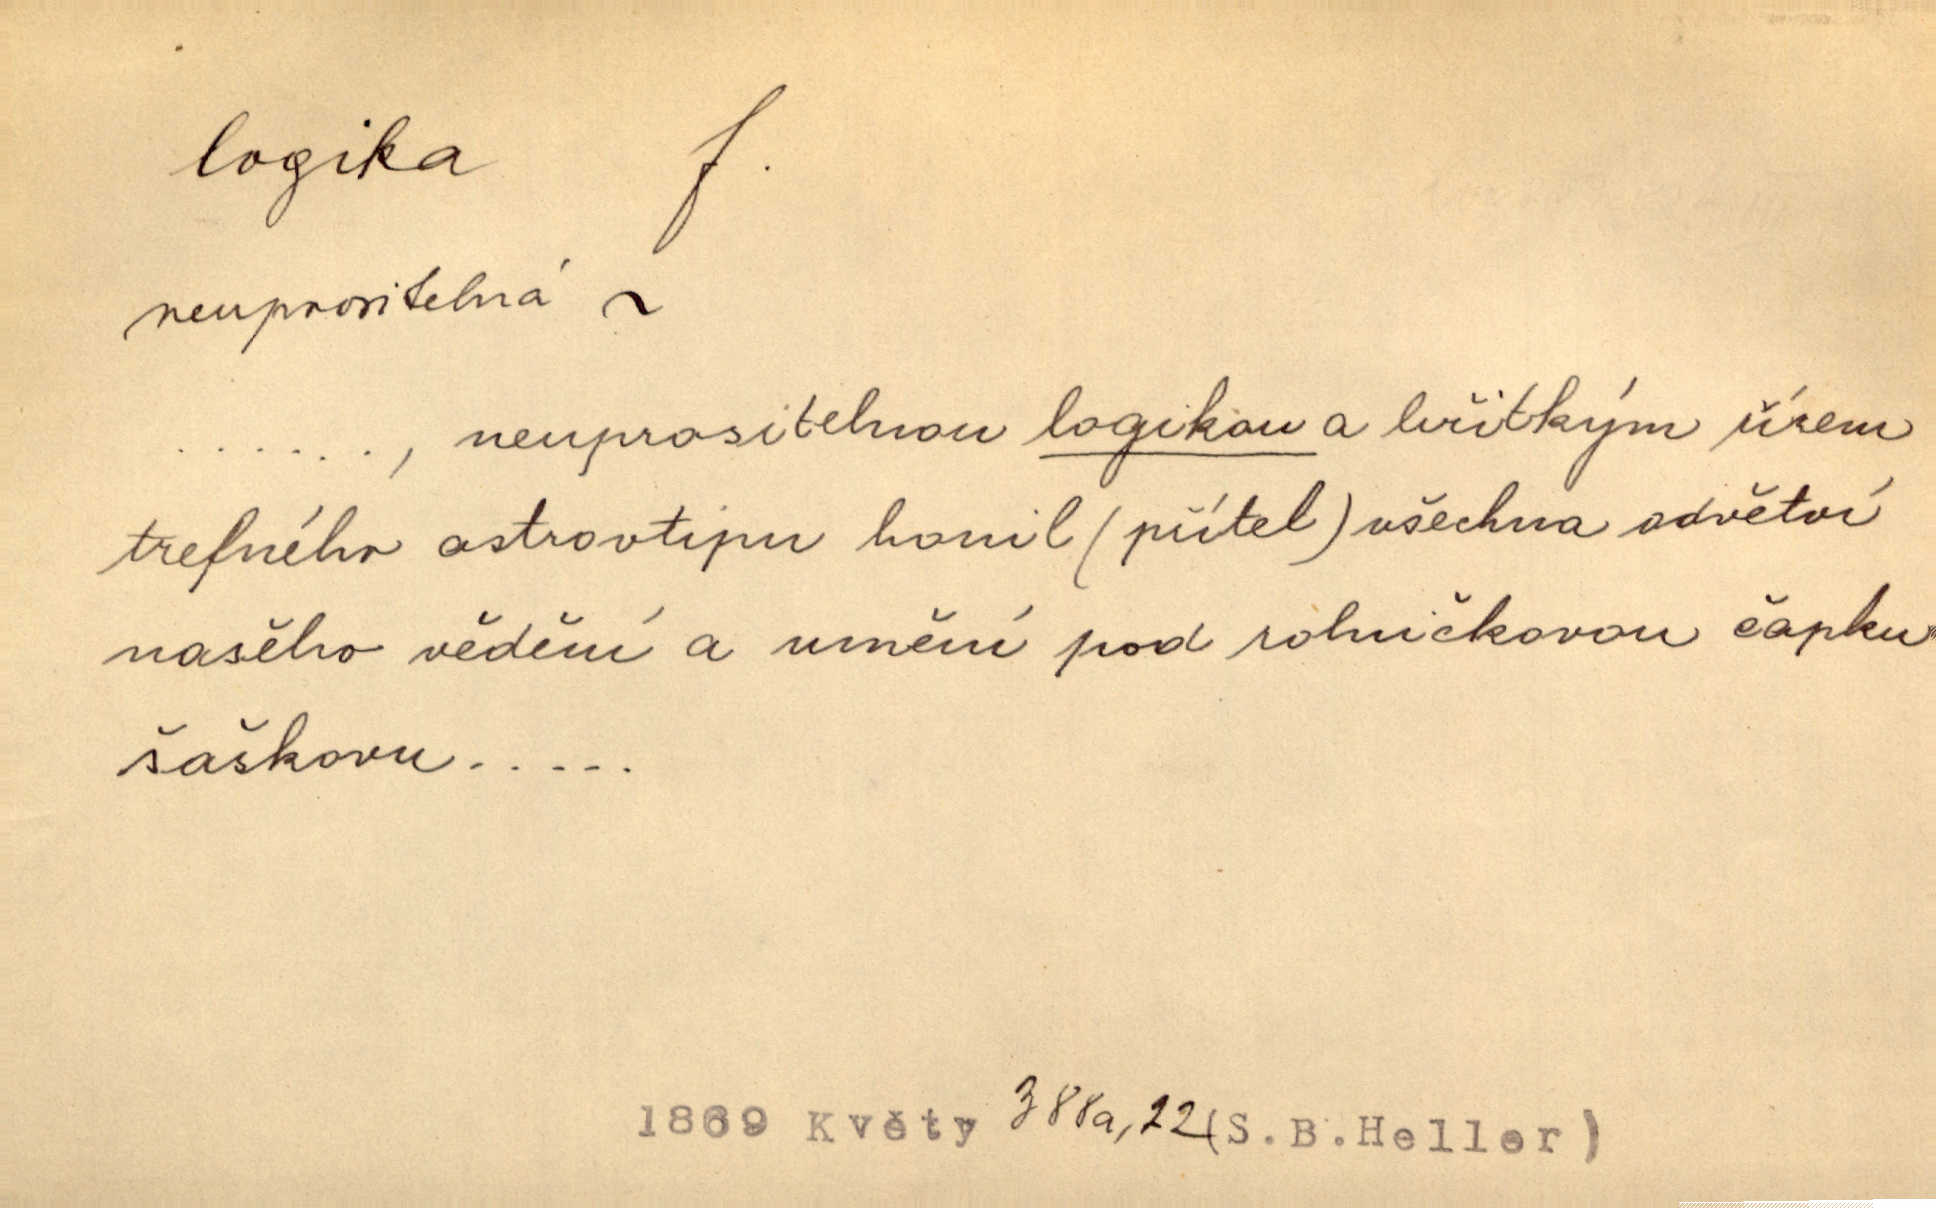 logika f.
neuprositelná ~
......., neuprositelnou logikou a břitkým
trefného ostrovtipu honil (přítel) všechna odvětví
našeho vědění a umění pod rolničkovou čapku
šaškovu.....
1869 Květy 388a,22 (S.B.Heller)